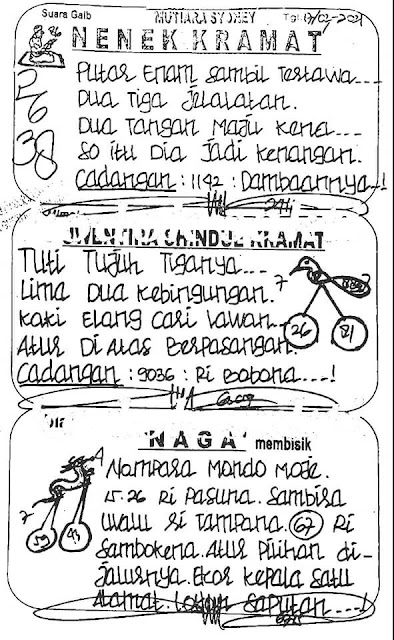 Suara Gaib MUTIARA SYDNEY
NENEK KRAMAT
Putar Enam Sambil Tertawa...
Dua Tiga Jelalatan.
Dua Tangan Maju Kena...
So itu Dia Jadi Kenangan.
Cadangan : 1142 : Dambaannya--!
26
38
KRAMAT
Tuti Tujuh Tiganya...
Lima Dua Kebingungan.
Kaki Elang Cari Lawan...
Atur Di Atas Berpasangan.
Cadangan : 9036 : Ri Bobona...!
7
26 81
NAGA membisik
Nampasa Mondo Moje.
15.26 Ri Pasuna. Sambisa
Uwalu Si Tampana. 67 Ri
Sambokena. Atur Pilihan di-
Jalurnya. Ekor Kepala Satu
Alamat. Saputan----!
7